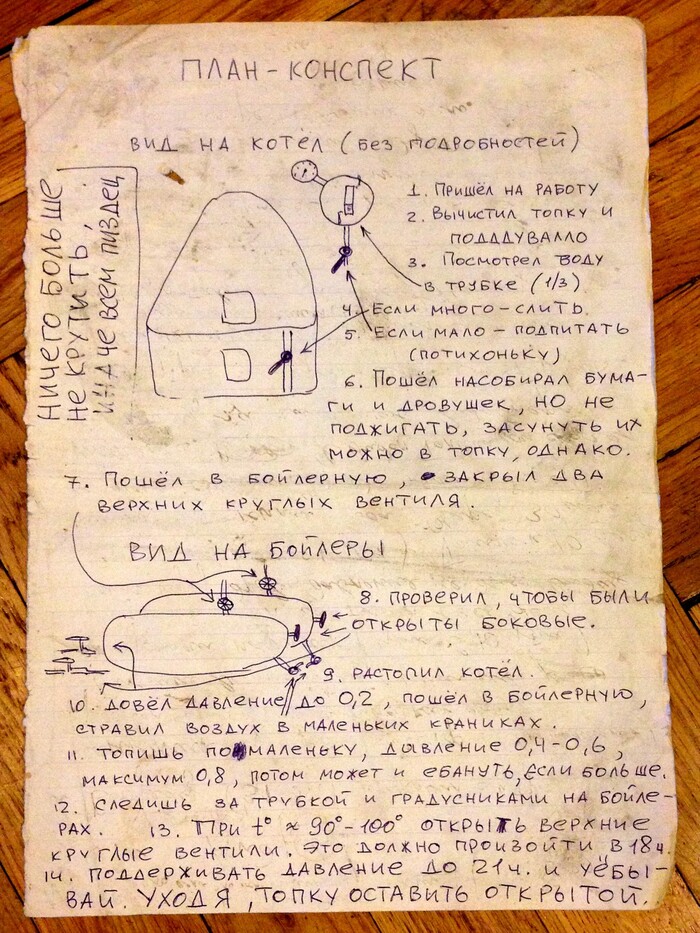 ПЛАН-КОНСПЕКТ
ВИД НА КОТЁЛ (БЕЗ ПОДРОБНОСТЕЙ)
НИЧЕГО БОЛЬШЕ
НЕ КРУТИТЬ,
ИНАЧЕ ВСЕМ ПИЗДЕЦ
1. ПРИШЁЛ НА РАБОТУ
2. ВЫЧИСТИЛ ТОПКУ И
ПОДДДУВАЛЛО
3. ПОСМОТРЕЛ ВОДУ
В ТРУБКЕ (1/3)
4. ЕСЛИ МНОГО-СЛИТЬ.
5. ЕСЛИ МАЛО-ПОДПИТАТЬ
(ПОТИХОНЬКУ)
6. ПОШЁЛ НАСОБИРАЛ БУМА-
ГИ И ДРОВУШЕК, НО НЕ
ПОДЖИГАТЬ, ЗАСУНУТЬ ИХ
МОЖНО В ТОПКУ, ОДНАКО.
7. ПОШЁЛ В БОЙЛЕРНУЮ, ЗАКРЫЛ ДВА
ВЕРХНИХ КРУГЛЫХ ВЕНТИЛЯ.
ВИД НА БОЙЛЕРЫ
8. ПРОВЕРИЛ, ЧТОБЫ БЫЛИ
ОТКРЫТЫ БОКОВЫЕ.
9. РАСТОПИЛ КОТЁЛ.
10. ДОВЁЛ ДАВЛЕНИЕ ДО 0,2, ПОШЁЛ В БОЙЛЕРНУЮ,
СТРАВИЛ ВОЗДУХ В МАЛЕНЬКИХ КРАНИКАХ.
11. ТОПИШЬ ПОМАЛЕНЬКУ, ДЫВЛЕНИЕ 0,4-0,6,
МАКСИМУМ 0,8, ПОТОМ МОЖЕТ И ЕБАНУТЬ, ЕСЛИ БОЛЬШЕ.
12. СЛЕДИШЬ ЗА ТРУБКОЙ И ГРАДУСНИКАМИ НА БОЙЛЕ-
РАХ. 13. ПРИ t° ≈ 90°-100° ОТКРЫТЬ ВЕРХНИЕ
КРУГЛЫЕ ВЕНТИЛИ. ЭТО ДОЛЖНО ПРОИЗОЙТИ В 18ч.
14. ПОДДЕРЖИВАТЬ ДАВЛЕНИЕ ДО 21ч. И УЁБЫ-
ВАЙ. УХОДЯ, ТОПКУ ОСТАВИТЬ ОТКРЫТОЙ.